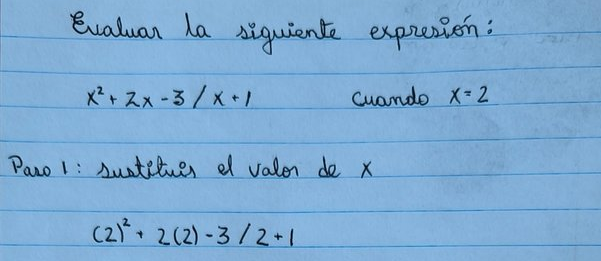 Evaluar la siguiente expresión:
x² + 2x - 3 / x + 1 cuando x = 2
Paso 1: sustituir el valor de x
(2)² + 2(2) - 3 / 2 + 1